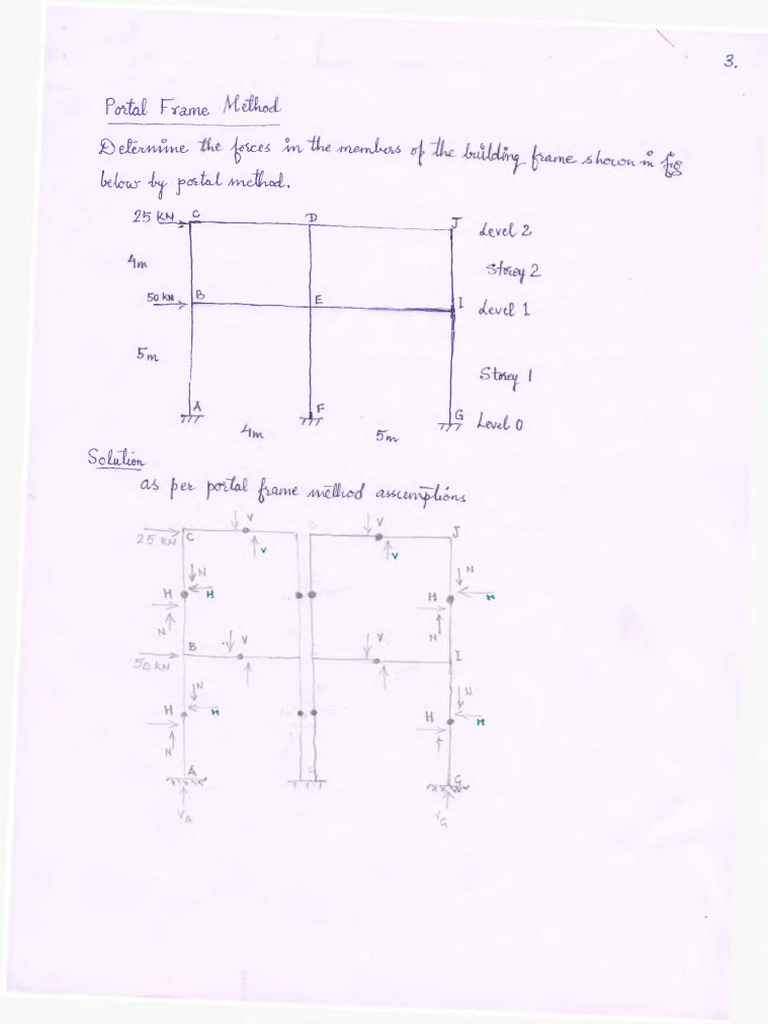 3.
Portal Frame Method
Determine the forces in the members of the building frame shown in fig
below by portal method.
25 KN C D J Level 2
4m Storey 2
50 KN B E I Level 1
5m Storey 1
A F G Level 0
4m 5m
Solution
as per portal frame method assumptions
V V
25 KN C J
V V
N N
H H H H
N N
B V V I
50 KN
N N
H H H H
N
A G
VA VG